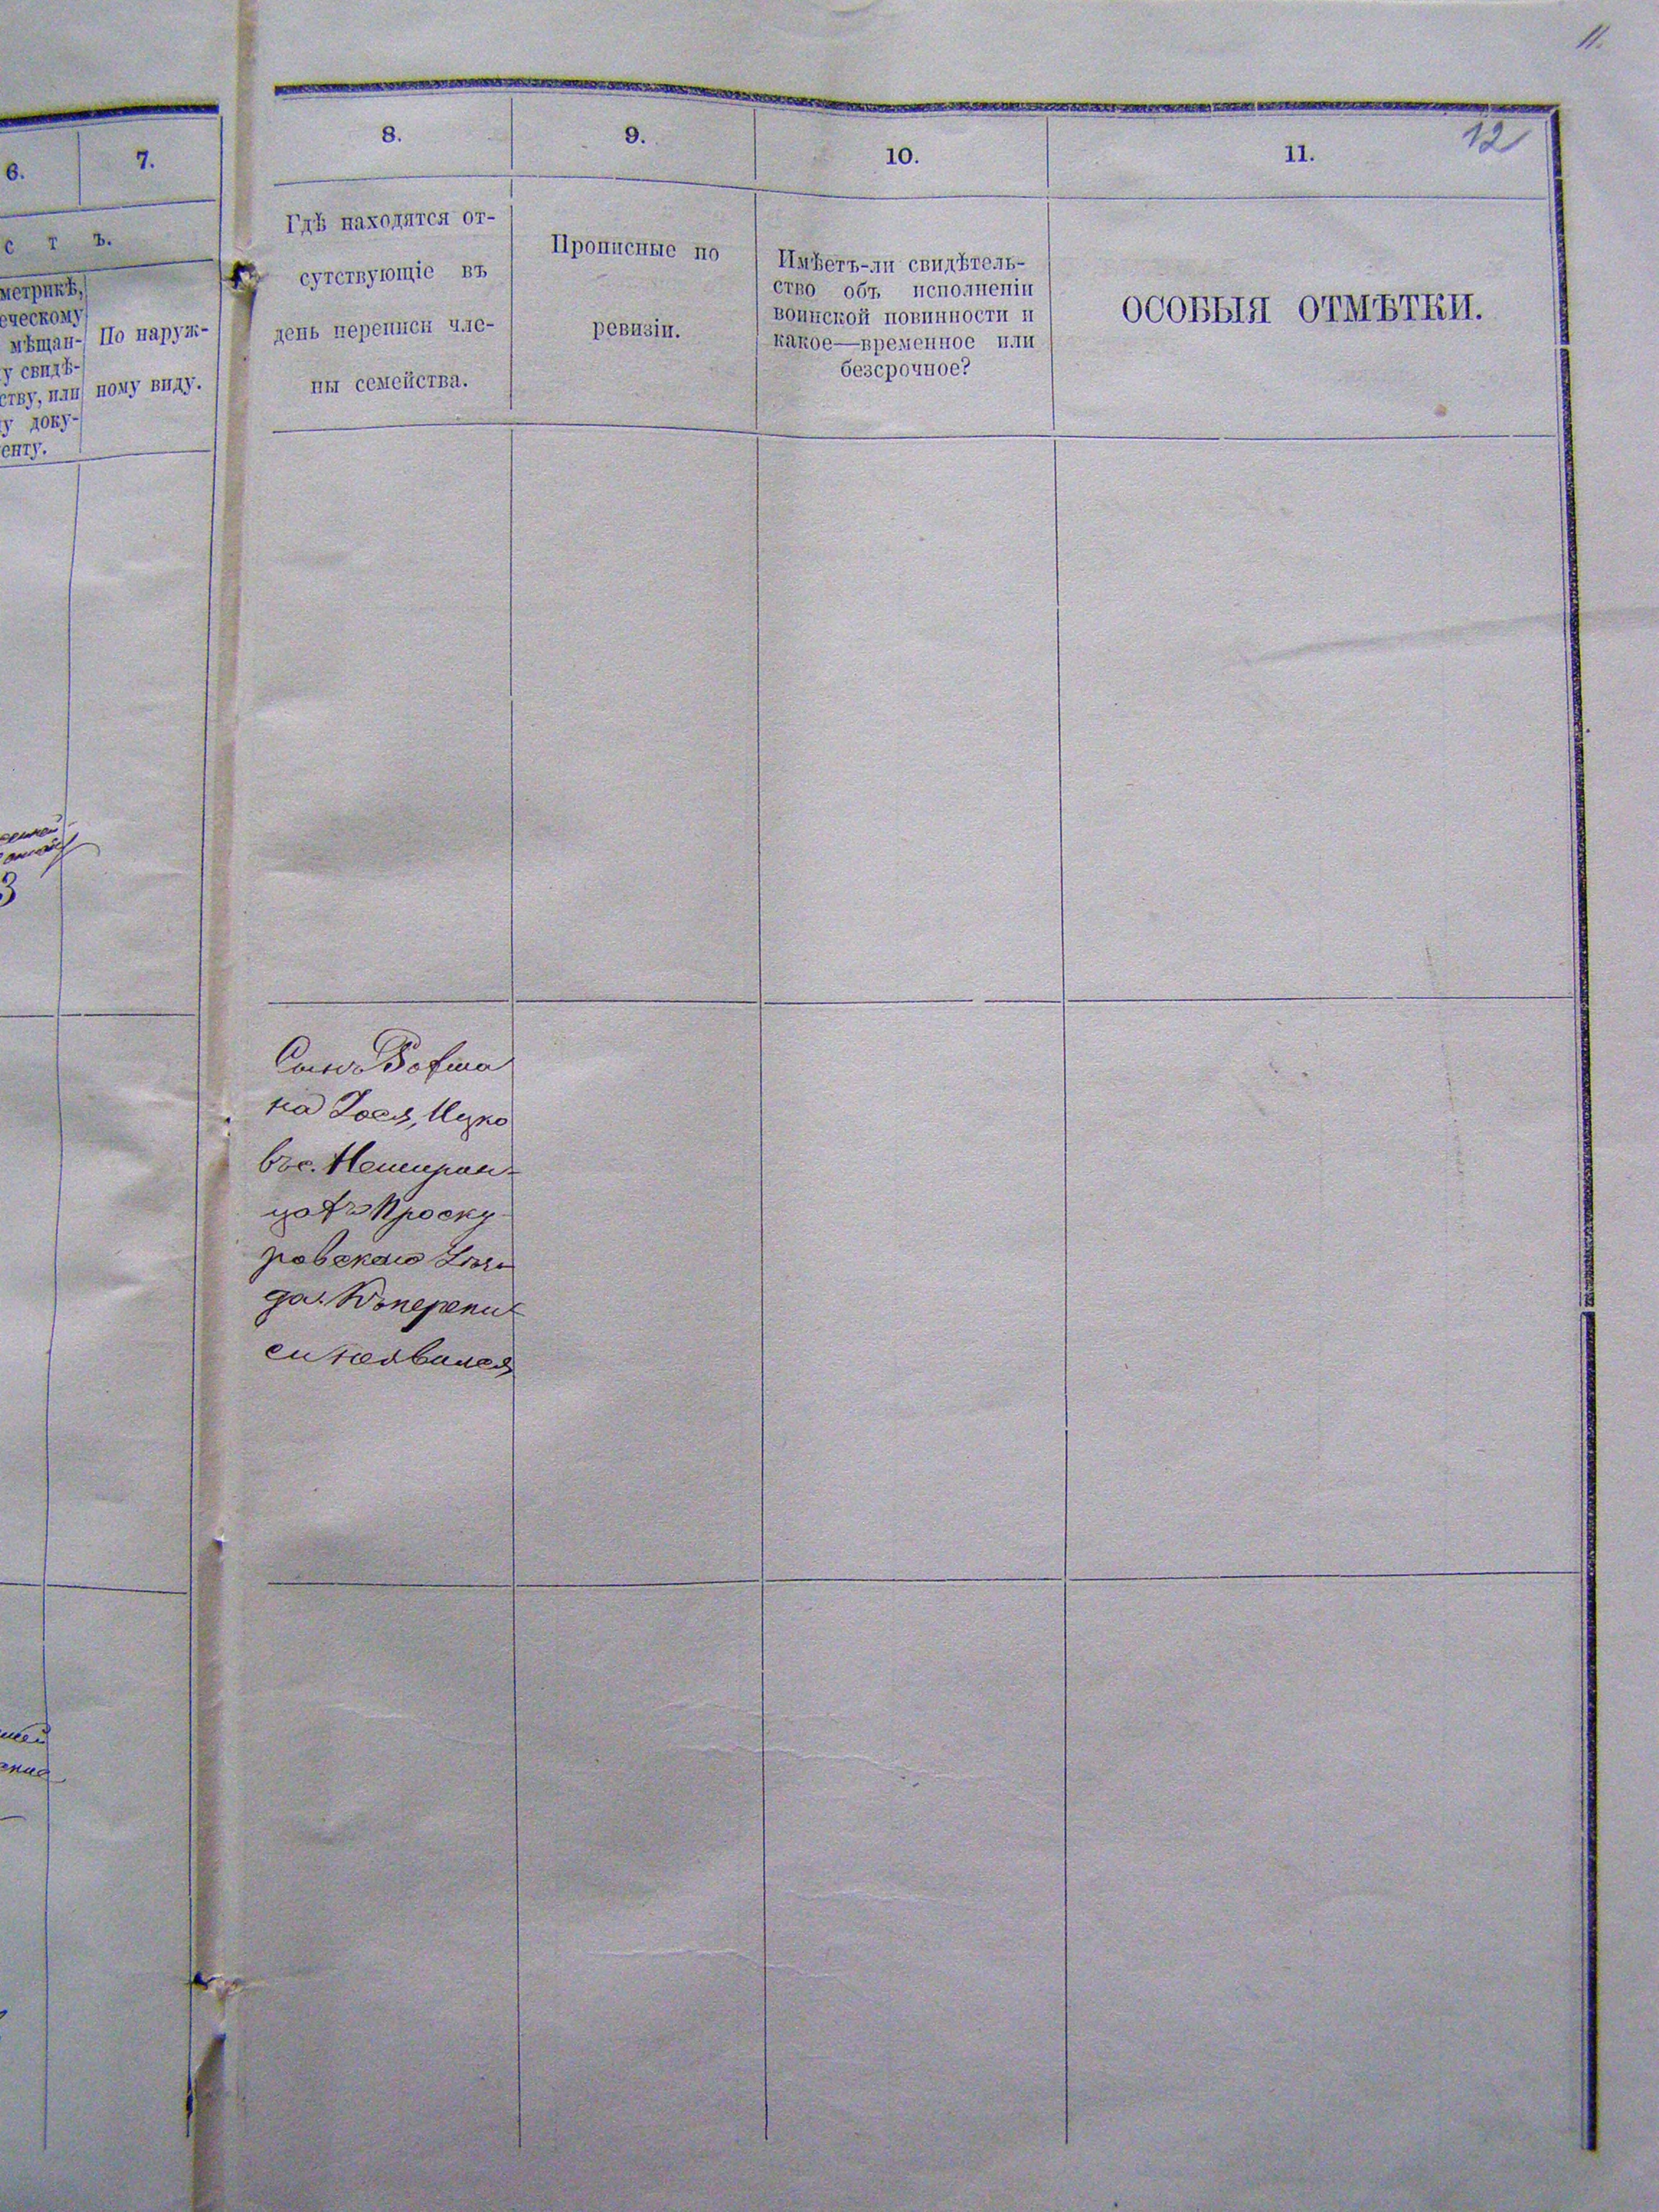 11.
12
6.
7.
с т ъ.
метрикѣ,
еческому
мѣщан-
у свидѣ-
ству, или
у доку-
енту.
По наруж-
ному виду.
3
8.
Гдѣ находятся от-
сутствующіе въ
день переписи чле-
ны семейства.
9.
Прописные по
ревизіи.
10.
Имѣетъ-ли свидѣтель-
ство объ исполненіи
воинской повинности и
какое—временное или
безсрочное?
11.
ОСОБЫЯ ОТМѢТКИ.
Сынъ
Іося, Ицко
въ с. Немирин-
цахъ Проску
ровскаго Уѣз
да. Къ перепи
си неявился